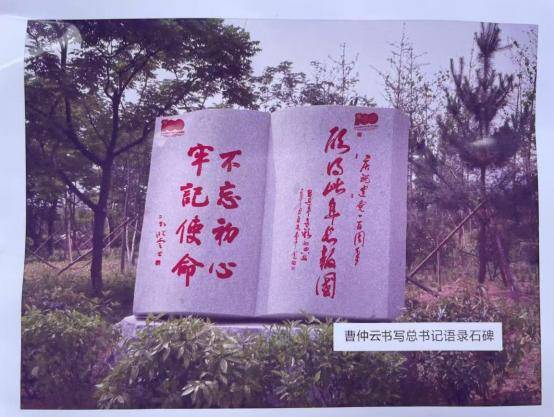 庆祝建党一百周年
愿得此身长报国
不忘初心
牢記使命
曹仲云书写总书记语录石碑